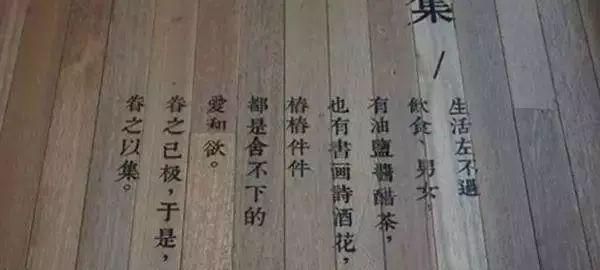 集
/
生活左不過
飲食、男女，
有油鹽醬醋茶，
也有書画詩酒花，
樁樁件件
都是舍不下的
愛和欲。
眷之已极，于是，
眷之以集。